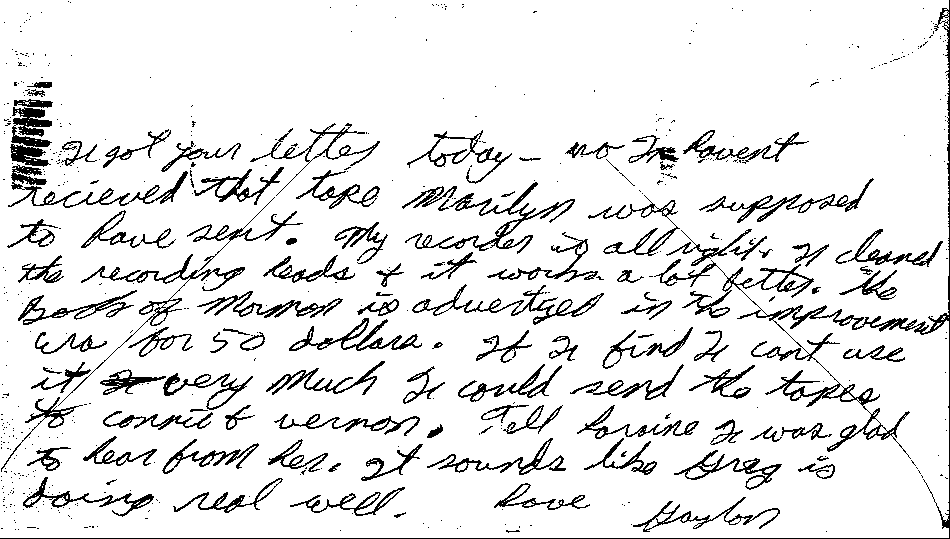 I got your letter today - no I havent
recieved that tape Marilyn was supposed
to have sent. My recorder is all right. I cleaned
the recording heads & it works a lot better. The
Book of Mormon is advertized in the improvement
era for 50 dollars. If I find I cant use
it very much I could send the tapes
to connie & vernon. Tell Loraine I was glad
to hear from her. It sounds like Greg is
doing real well. Love Gaylon